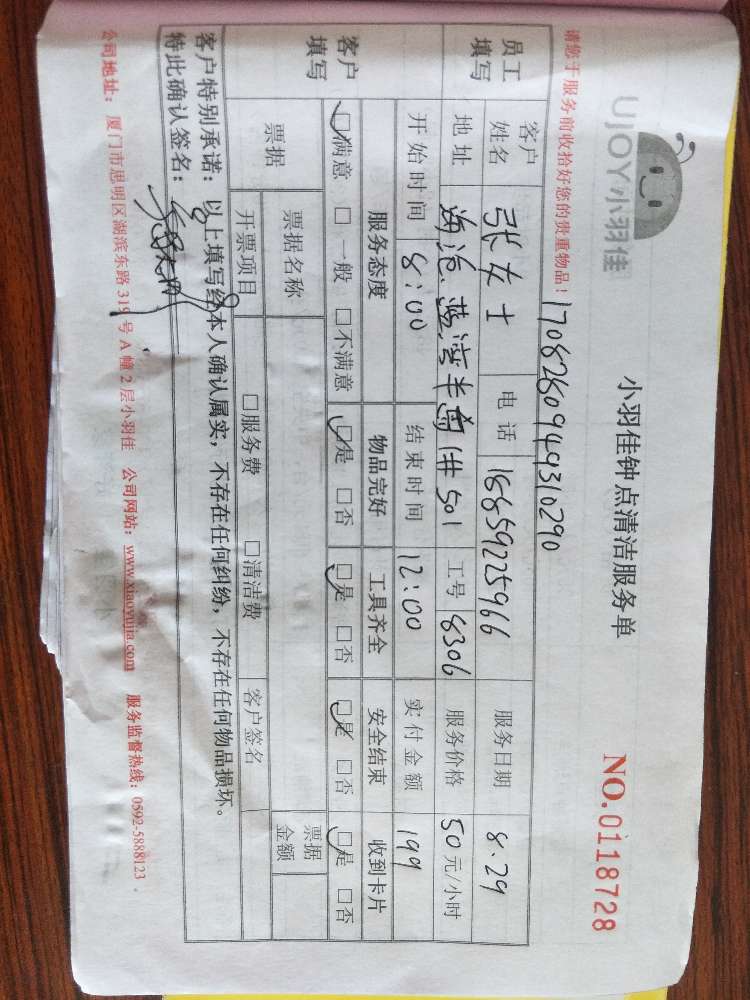 UJOY小羽佳
小羽佳钟点清洁服务单
NO.0118728
请您于服务前收拾好您的贵重物品! 17082809449310290
员工填写 客户姓名 张女士 电话 18859225966 服务日期 8.29
地址 海沧 蓝湾半岛 501 工号 8306 服务价格 50元/小时
开始时间 8:00 结束时间 12:00 实付金额 199
客户填写 服务态度 物品完好 工具齐全 安全结束 收到卡片
☑满意 □一般 □不满意 ☑是 □否 ☑是 □否 ☑是 □否 ☑是 □否
票据 票据名称 票据金额
开票项目 □服务费 □清洁费 客户签名
客户特别承诺：以上填写经本人确认属实，不存在任何纠纷，不存在任何物品损坏。
特此确认签名：
公司地址：厦门市思明区湖滨东路319号A幢2层小羽佳 公司网站：www.xiaoyujia.com 服务监督热线：0592-5888123.